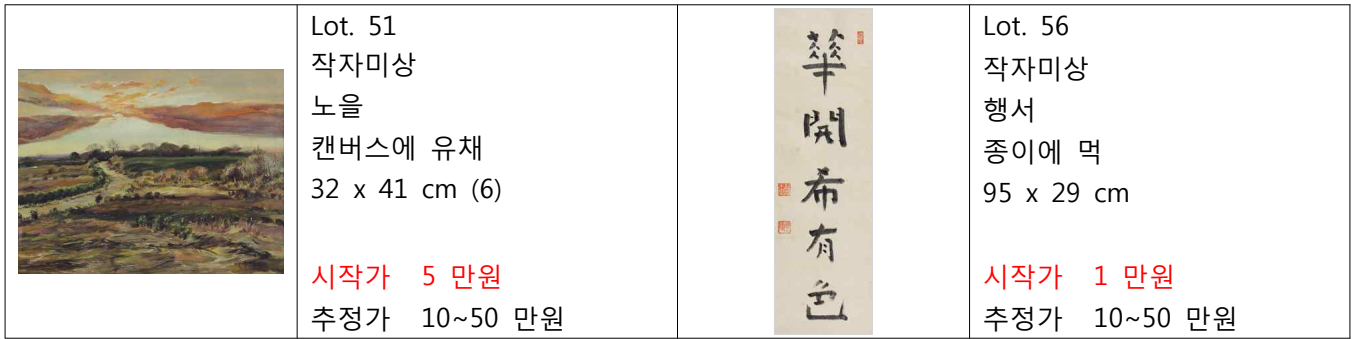 Lot. 51
작자미상
노을
캔버스에 유채
32 x 41 cm (6)
시작가 5 만원
추정가 10~50 만원
華
開
希
有
色
Lot. 56
작자미상
행서
종이에 먹
95 x 29 cm
시작가 1 만원
추정가 10~50 만원